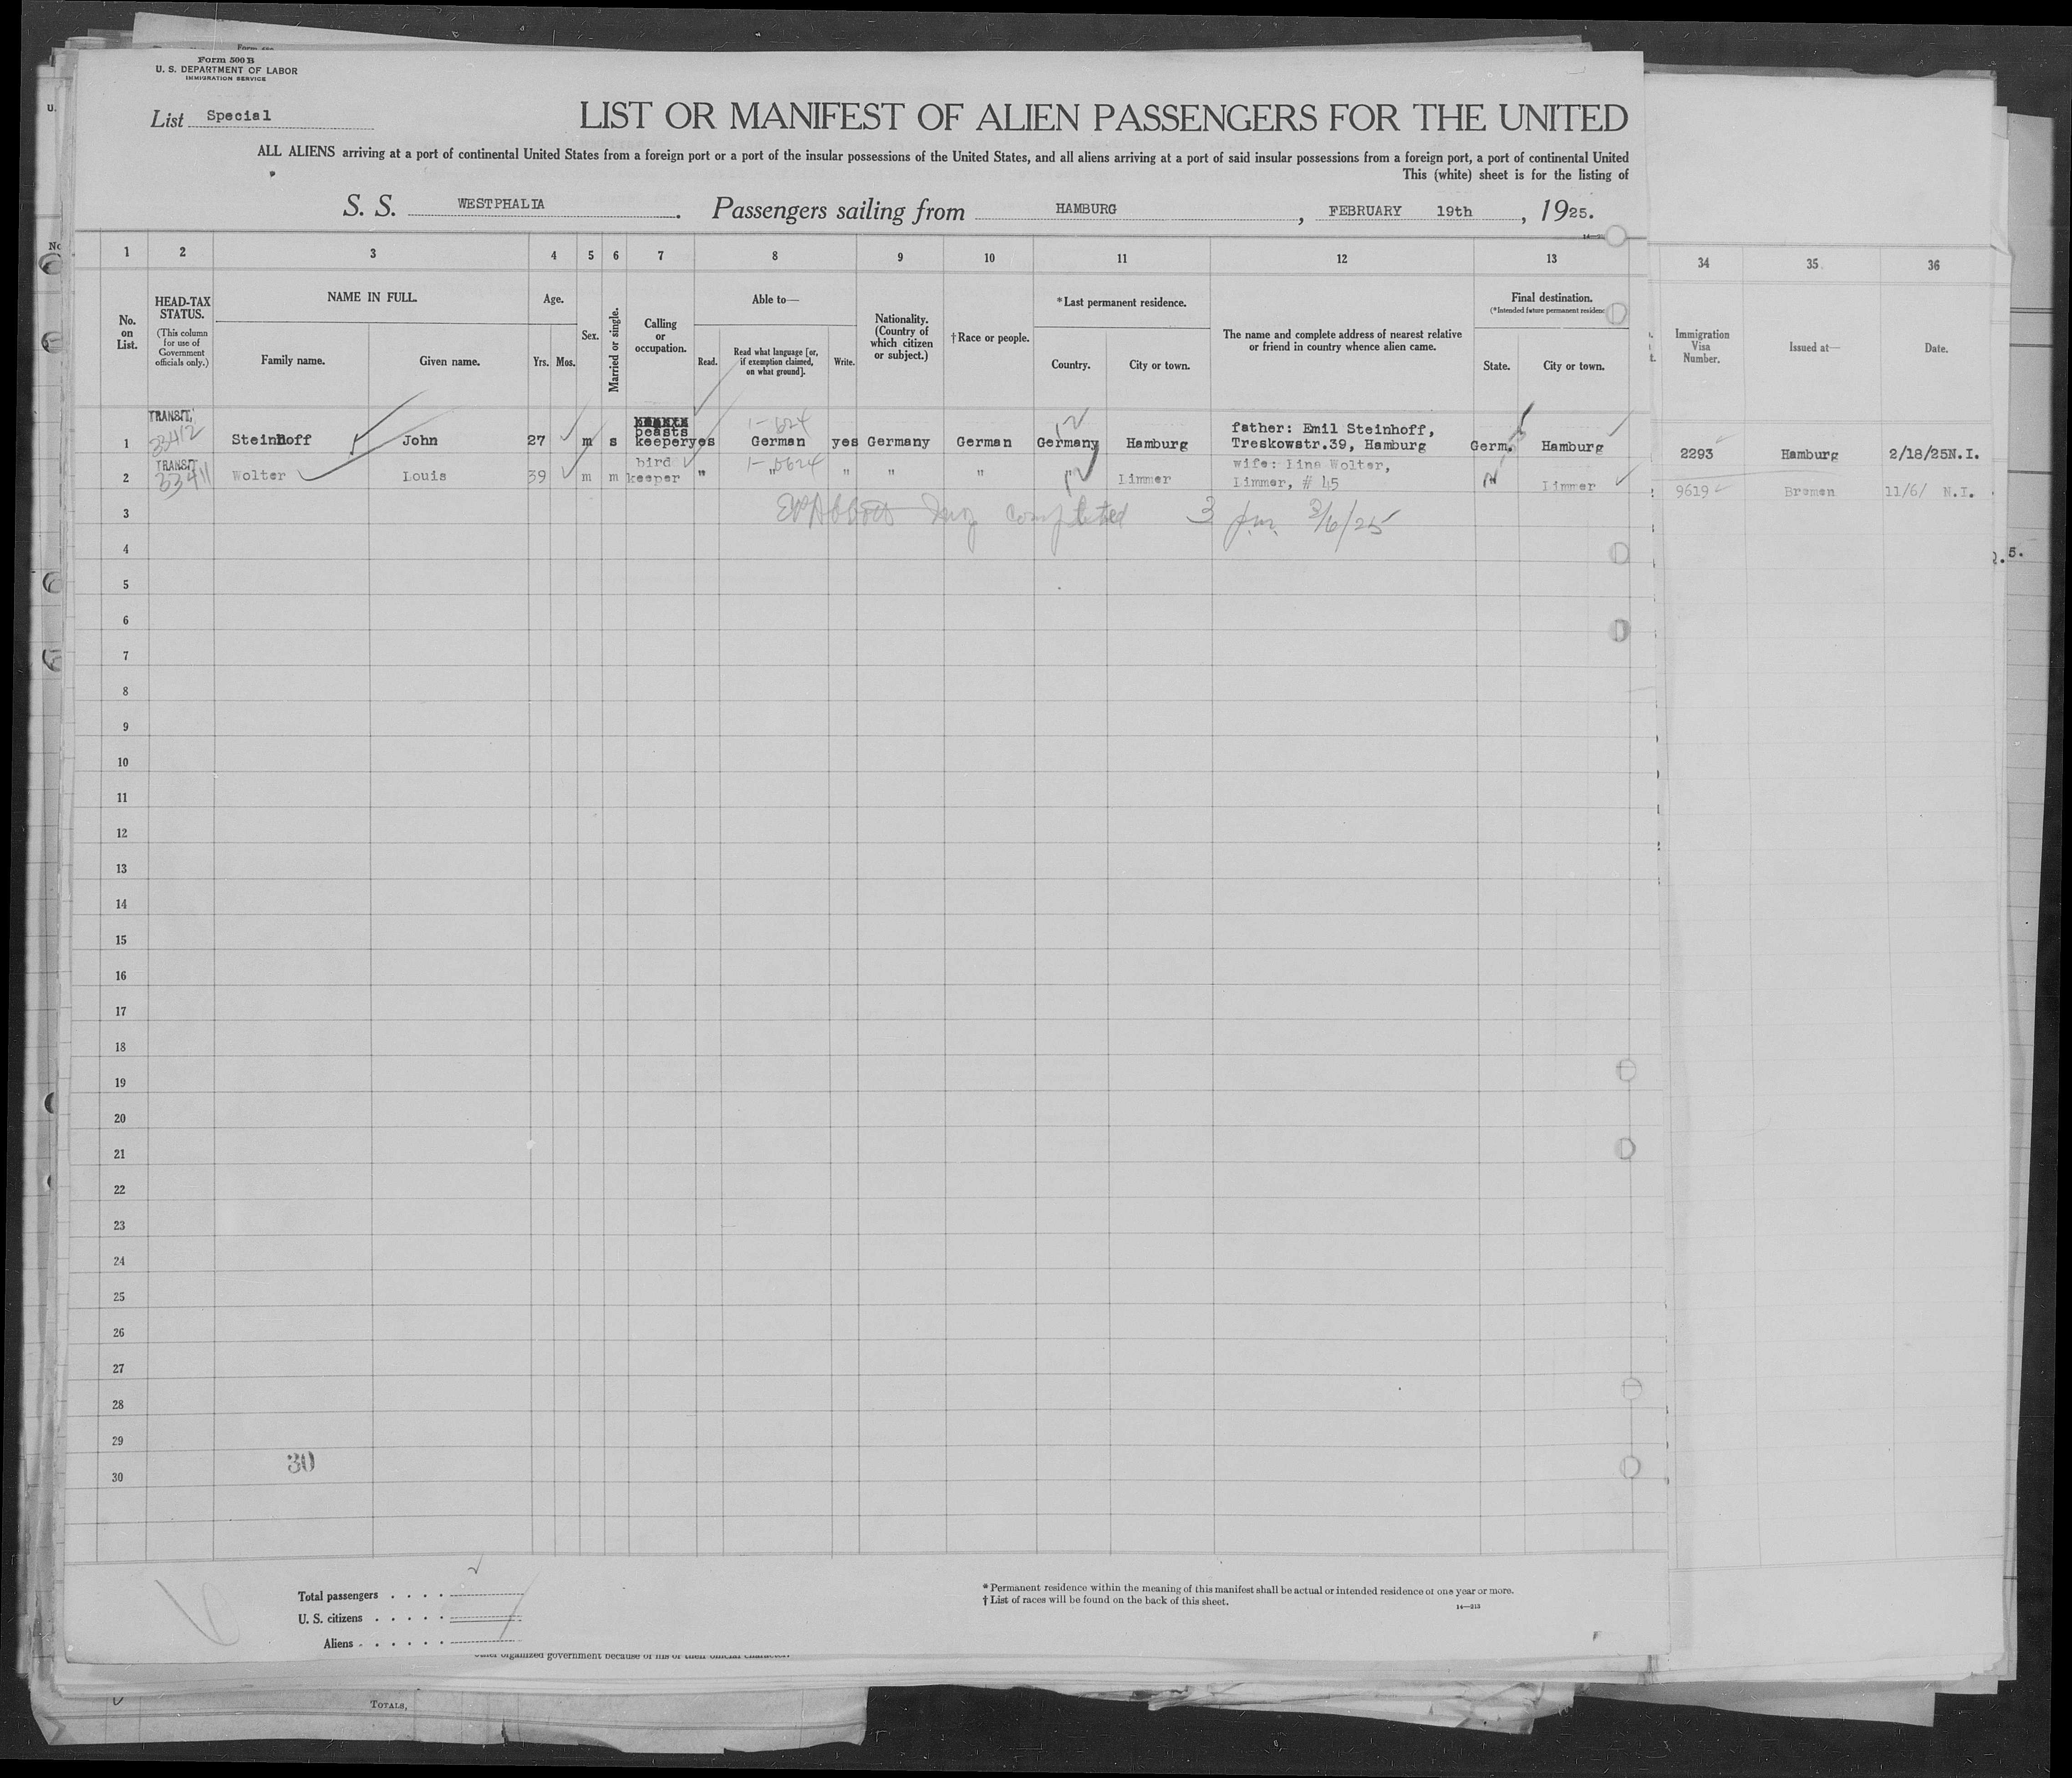 Form 500 B
U. S. DEPARTMENT OF LABOR
IMMIGRATION SERVICE
List Special
LIST OR MANIFEST OF ALIEN PASSENGERS FOR THE UNITED
ALL ALIENS arriving at a port of continental United States from a foreign port or a port of the insular possessions of the United States, and all aliens arriving at a port of said insular possessions from a foreign port, a port of continental United
This (white) sheet is for the listing of
S. S. WESTPHALIA. Passengers sailing from HAMBURG, FEBRUARY 19th, 1925.
1 2 3 4 5 6 7 8 9 10 11 12 13 34 35 36
No. on List.
HEAD-TAX STATUS.
(This column for use of Government officials only.)
NAME IN FULL.
Family name. Given name.
Age.
Yrs. Mos.
Sex.
Married or single.
Calling or occupation.
Able to—
Read. Read what language [or, if exemption claimed, on what ground]. Write.
Nationality. (Country of which citizen or subject.)
† Race or people.
* Last permanent residence.
Country. City or town.
The name and complete address of nearest relative or friend in country whence alien came.
Final destination.
(*Intended future permanent residence
State. City or town.
Immigration Visa Number.
Issued at—
Date.
TRANSIT, 33412 1-624
beasts father: Emil Steinhoff,
1 Steinhoff John 27 m s keeper yes German yes Germany German Germany Hamburg Treskowstr.39, Hamburg Germ. Hamburg 2293 Hamburg 2/18/25 N.I.
TRANSIT 33411 bird wife: Lina Wolter,
2 Wolter Louis 39 m m keeper " " " " " " Limmer Limmer, # 45 " Limmer 9619 Bremen 11/6/ N.I.
3 completed 3 p.m. 3/6/25
4
5
6
7
8
9
10
11
12
13
14
15
16
17
18
19
20
21
22
23
24
25
26
27
28
29
30
30
Total passengers
U. S. citizens
Aliens
* Permanent residence within the meaning of this manifest shall be actual or intended residence of one year or more.
† List of races will be found on the back of this sheet.
14—313
other organized government because of his or their official character.
TOTALS,